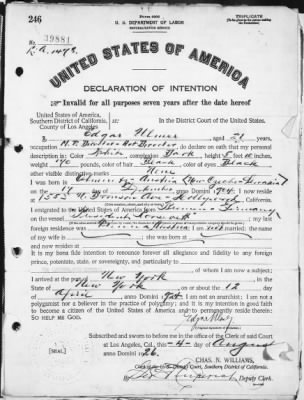 246
Form 2202
TRIPLICATE
U. S. DEPARTMENT OF LABOR
NATURALIZATION SERVICE
No. 39881
UNITED STATES OF AMERICA
DECLARATION OF INTENTION
Invalid for all purposes seven years after the date hereof
United States of America,
Southern District of California,
County of Los Angeles
In the District Court of the United States.
I, Edgar Ulmer, aged 21 years,
occupation M. P. Director Art Director, do declare on oath that my personal
description is: Color White, complexion Dark, height 5 feet 10 inches,
weight 140 pounds, color of hair Black, color of eyes Black
other visible distinctive marks None
I was born in Olmütz Austria
on the 17 day of, anno Domini 1904, I now reside
at 1555, Hollywood, California.
I emigrated to the United States of America from Germany
on the vessel; my last
foreign residence was Vienna Austria; I am not married; the name
of my wife is; she was born at
and now resides at
It is my bona fide intention to renounce forever all allegiance and fidelity to any foreign
prince, potentate, state, or sovereignty, and particularly to
of whom I am now a subject;
I arrived at the port of New York, in the
State of New York, on or about the 12 day
of April, anno Domini 1924; I am not an anarchist; I am not a
polygamist nor a believer in the practice of polygamy; and it is my intention in good faith
to become a citizen of the United States of America and to permanently reside therein:
SO HELP ME GOD.
Edgar Ulmer
Subscribed and sworn to before me in the office of the Clerk of said Court
at Los Angeles, Cal., this 4 day of August
anno Domini 1926.
[SEAL]
CHAS. N. WILLIAMS,
Clerk of the U.S. District Court, Southern District of California.
By, Deputy Clerk.